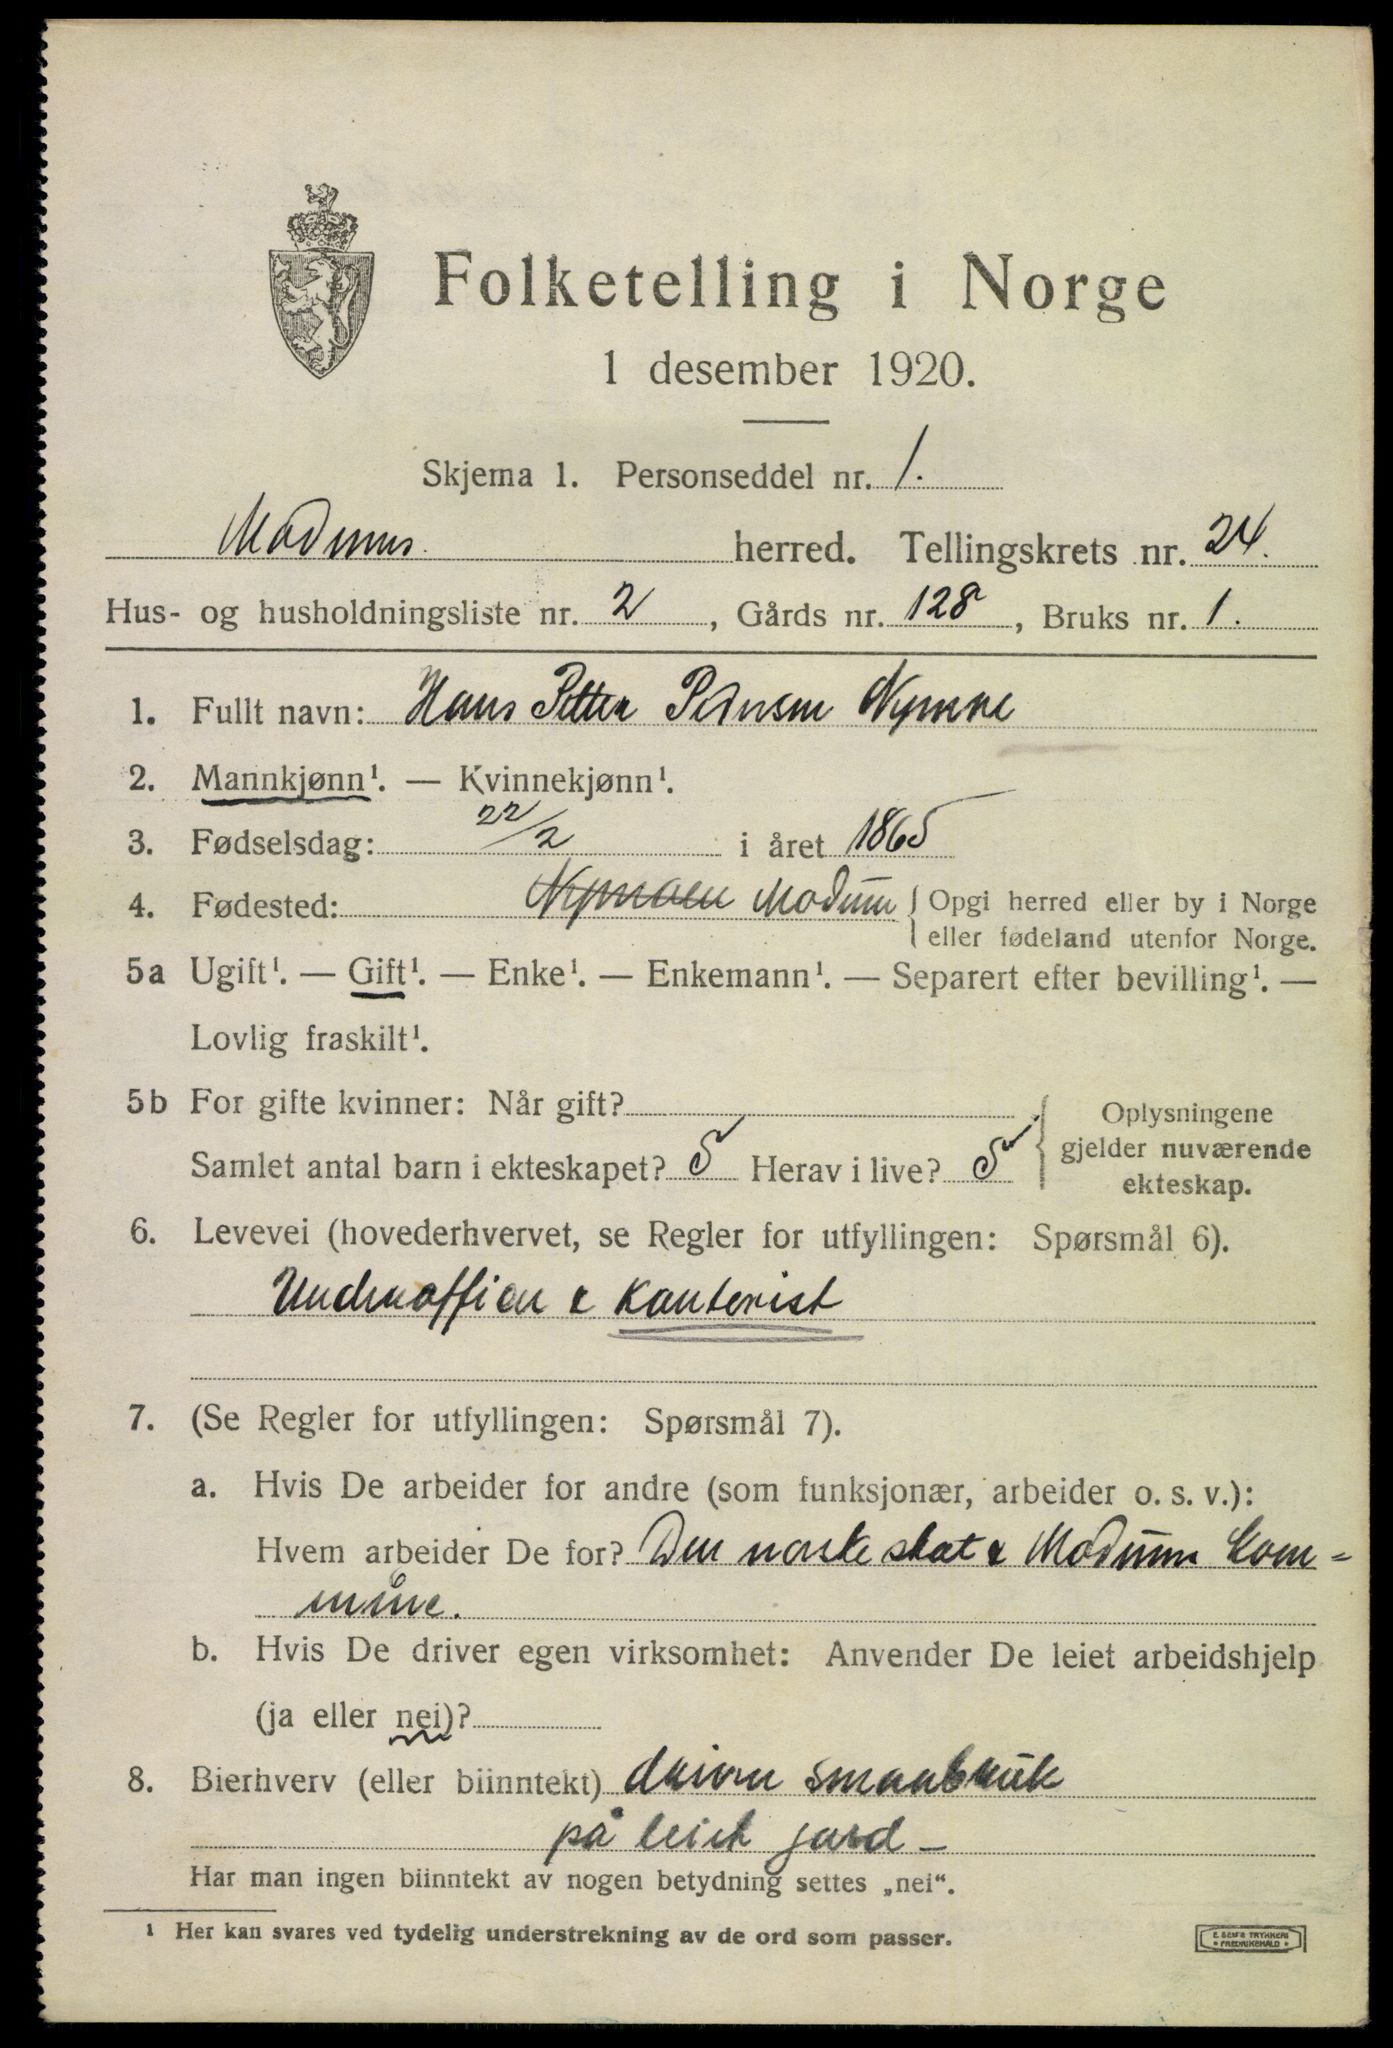 Folketelling i Norge
1 desember 1920.
Skjema 1. Personseddel nr. 1.
Modums herred. Tellingskrets nr. 24.
Hus- og husholdningsliste nr. 2, Gårds nr. 128, Bruks nr. 1.
1. Fullt navn: Hans Petter Pedersen Nymoe
2. Mannkjønn¹. — Kvinnekjønn¹.
3. Fødselsdag: 22/2 i året 1865
4. Fødested: Nymoen Modum { Opgi herred eller by i Norge
eller fødeland utenfor Norge.
5a Ugift¹. — Gift¹. — Enke¹. — Enkemann¹. — Separert efter bevilling¹. —
Lovlig fraskilt¹.
5b For gifte kvinner: Når gift? Oplysningene
gjelder nuværende
Samlet antal barn i ekteskapet? 5 Herav i live? 5
ekteskap.
6. Levevei (hovederhvervet, se Regler for utfyllingen: Spørsmål 6).
Underofficer & Kontorist
7. (Se Regler for utfyllingen: Spørsmål 7).
a. Hvis De arbeider for andre (som funksjonær, arbeider o. s. v.):
Hvem arbeider De for? Den norske stat & Modum Kom=
mune.
b. Hvis De driver egen virksomhet: Anvender De leiet arbeidshjelp
(ja eller nei)?
8. Bierhverv (eller biinntekt) driver smaabruk
på leiet gard –
Har man ingen biinntekt av nogen betydning settes „nei“.
¹ Her kan svares ved tydelig understrekning av de ord som passer.
E. SEMS TRYKKERI
• FREDRIKSHALD •